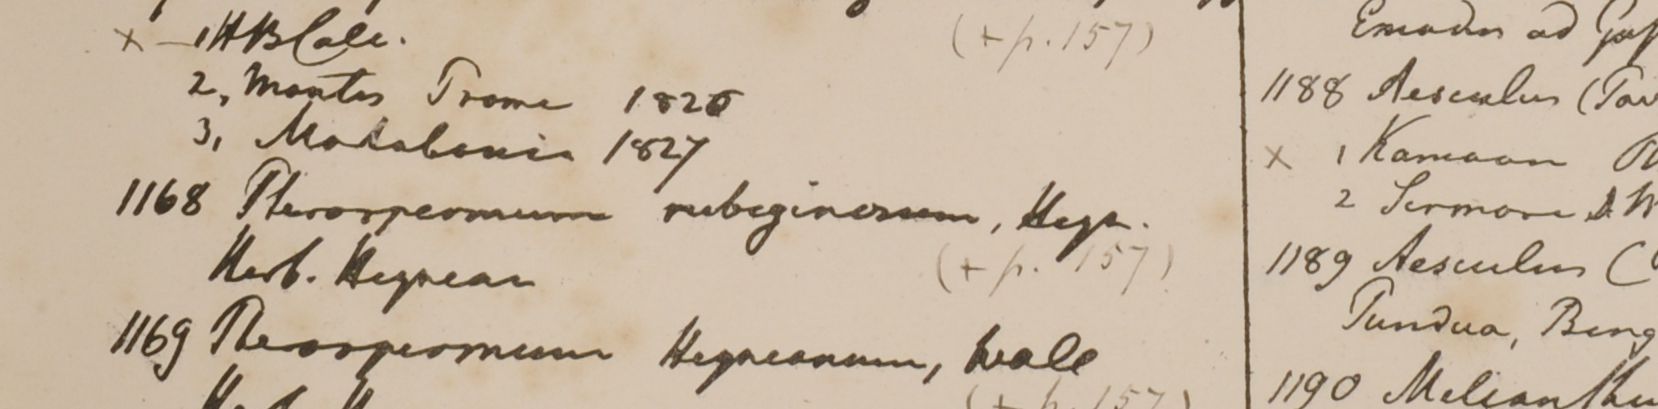 x 1 H B Calc. (+ p. 157)
2, Montes Prome 1826
3, Moalobonia 1827
1168 Pterospermum rubiginosum, Heyn.
Herb. Heynean (+ p. 157)
1169 Pterospermum Heyneanum, Wall
(+ p. 157)
Emodus ad
1188 Aesculus
x 1 Kamaon
2 Sermore
1189 Aesculus
Pundua, Beng
1190 Melianthu